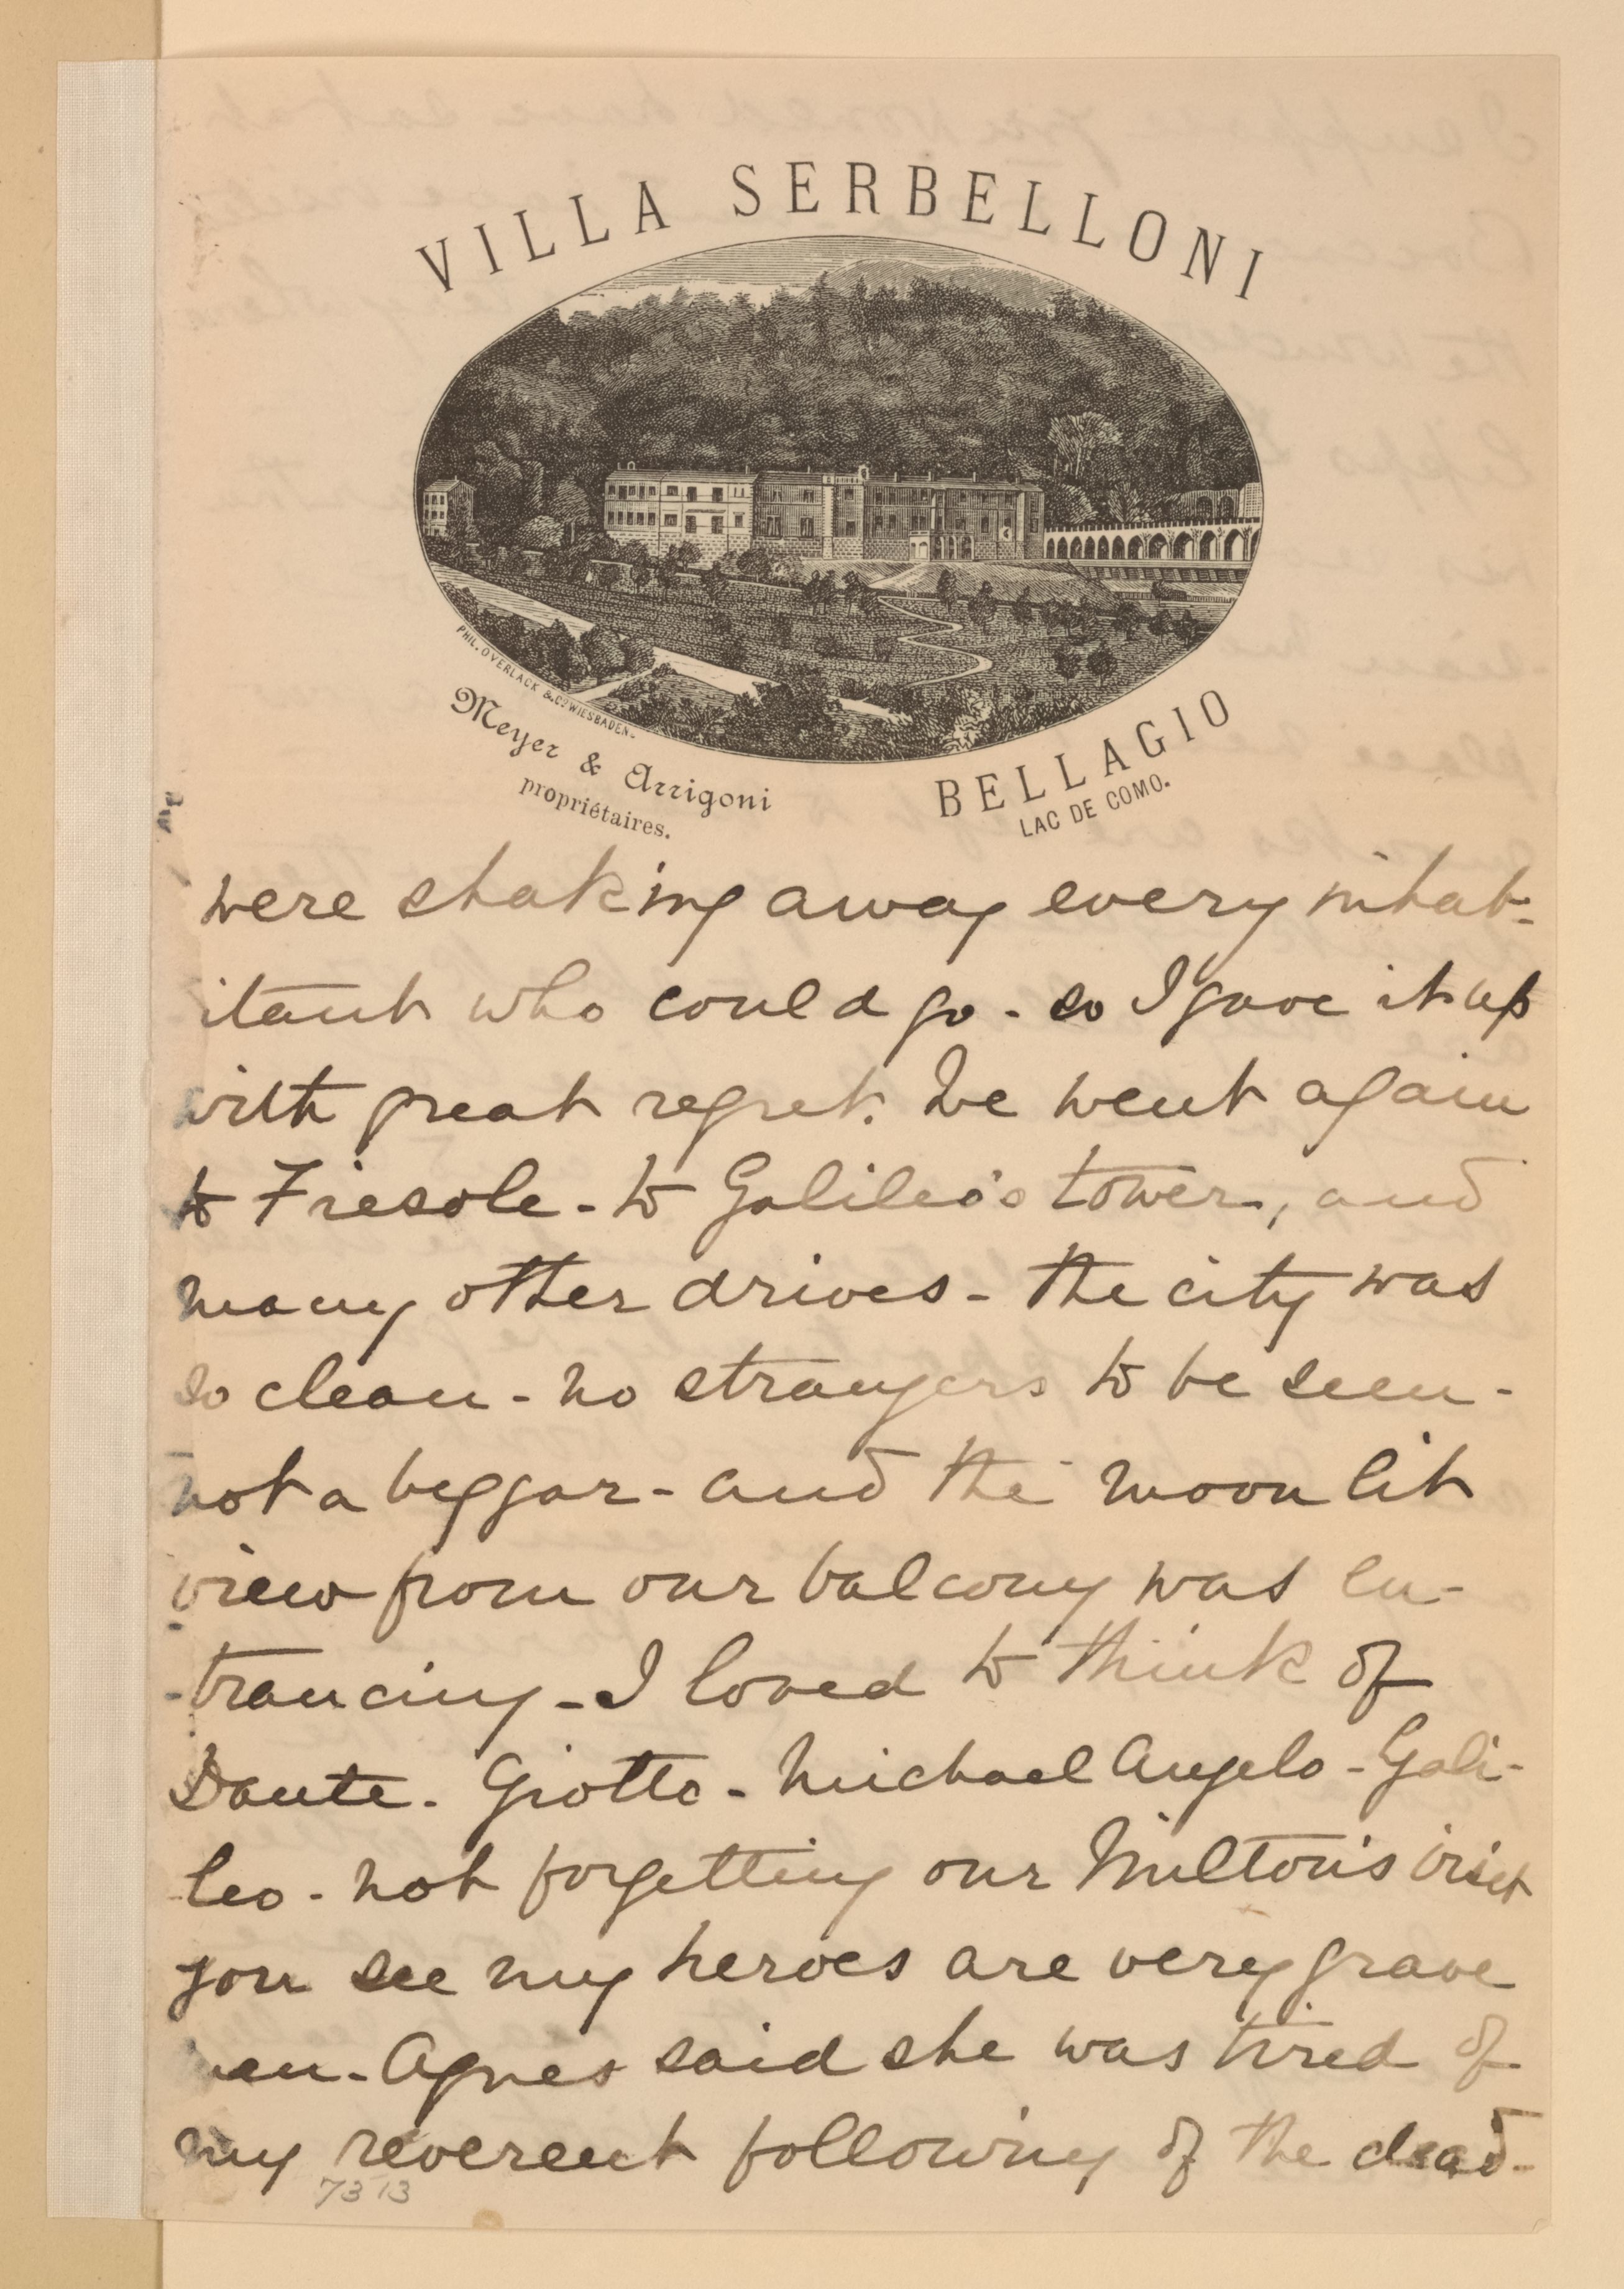 VILLA SERBELLONI
PHIL. OVERLACK & Co WIESBADEN.
Meyer & Arrigoni
propriétaires.
BELLAGIO
LAC DE COMO.
were shaking away every inhab-
itant who could go - so I gave it up
with great regret. We went again
to Fiesole - to Galileo's tower, and
many other drives - the city was
so clean - no strangers to be seen -
not a beggar - and the moon lit
view from our balcony was en-
-trancing - I loved to think of
Dante. Giotto - Michael Angelo - Gali-
leo - not forgetting our Milton's visit
you see my heroes are very grave
men - Agnes said she was tired of
my reverent following of the dead -
7313